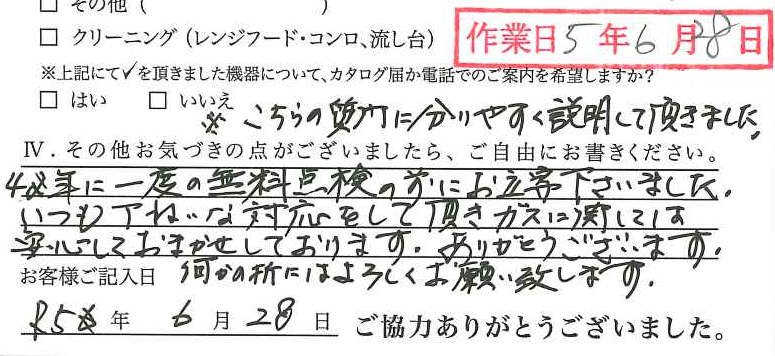 □ その他 (　　　　　　　)
□ クリーニング (レンジフード・コンロ、流し台)
作業日 5 年 6 月 28 日
※上記にて✓を頂きました機器について、カタログ届か電話でのご案内を希望しますか?
□ はい　□ いいえ
※ こちらの質問に分りやすく説明して頂きました。
Ⅳ. その他お気づきの点がございましたら、ご自由にお書きください。
4年に一度の無料点検の為にお立寄下さいました。
いつもていねいな対応をして頂きガスに関しては
安心しておまかせしております。ありがとうございます。
何かの折にはよろしくお願い致します。
お客様ご記入日
R5 年 6 月 28 日 ご協力ありがとうございました。